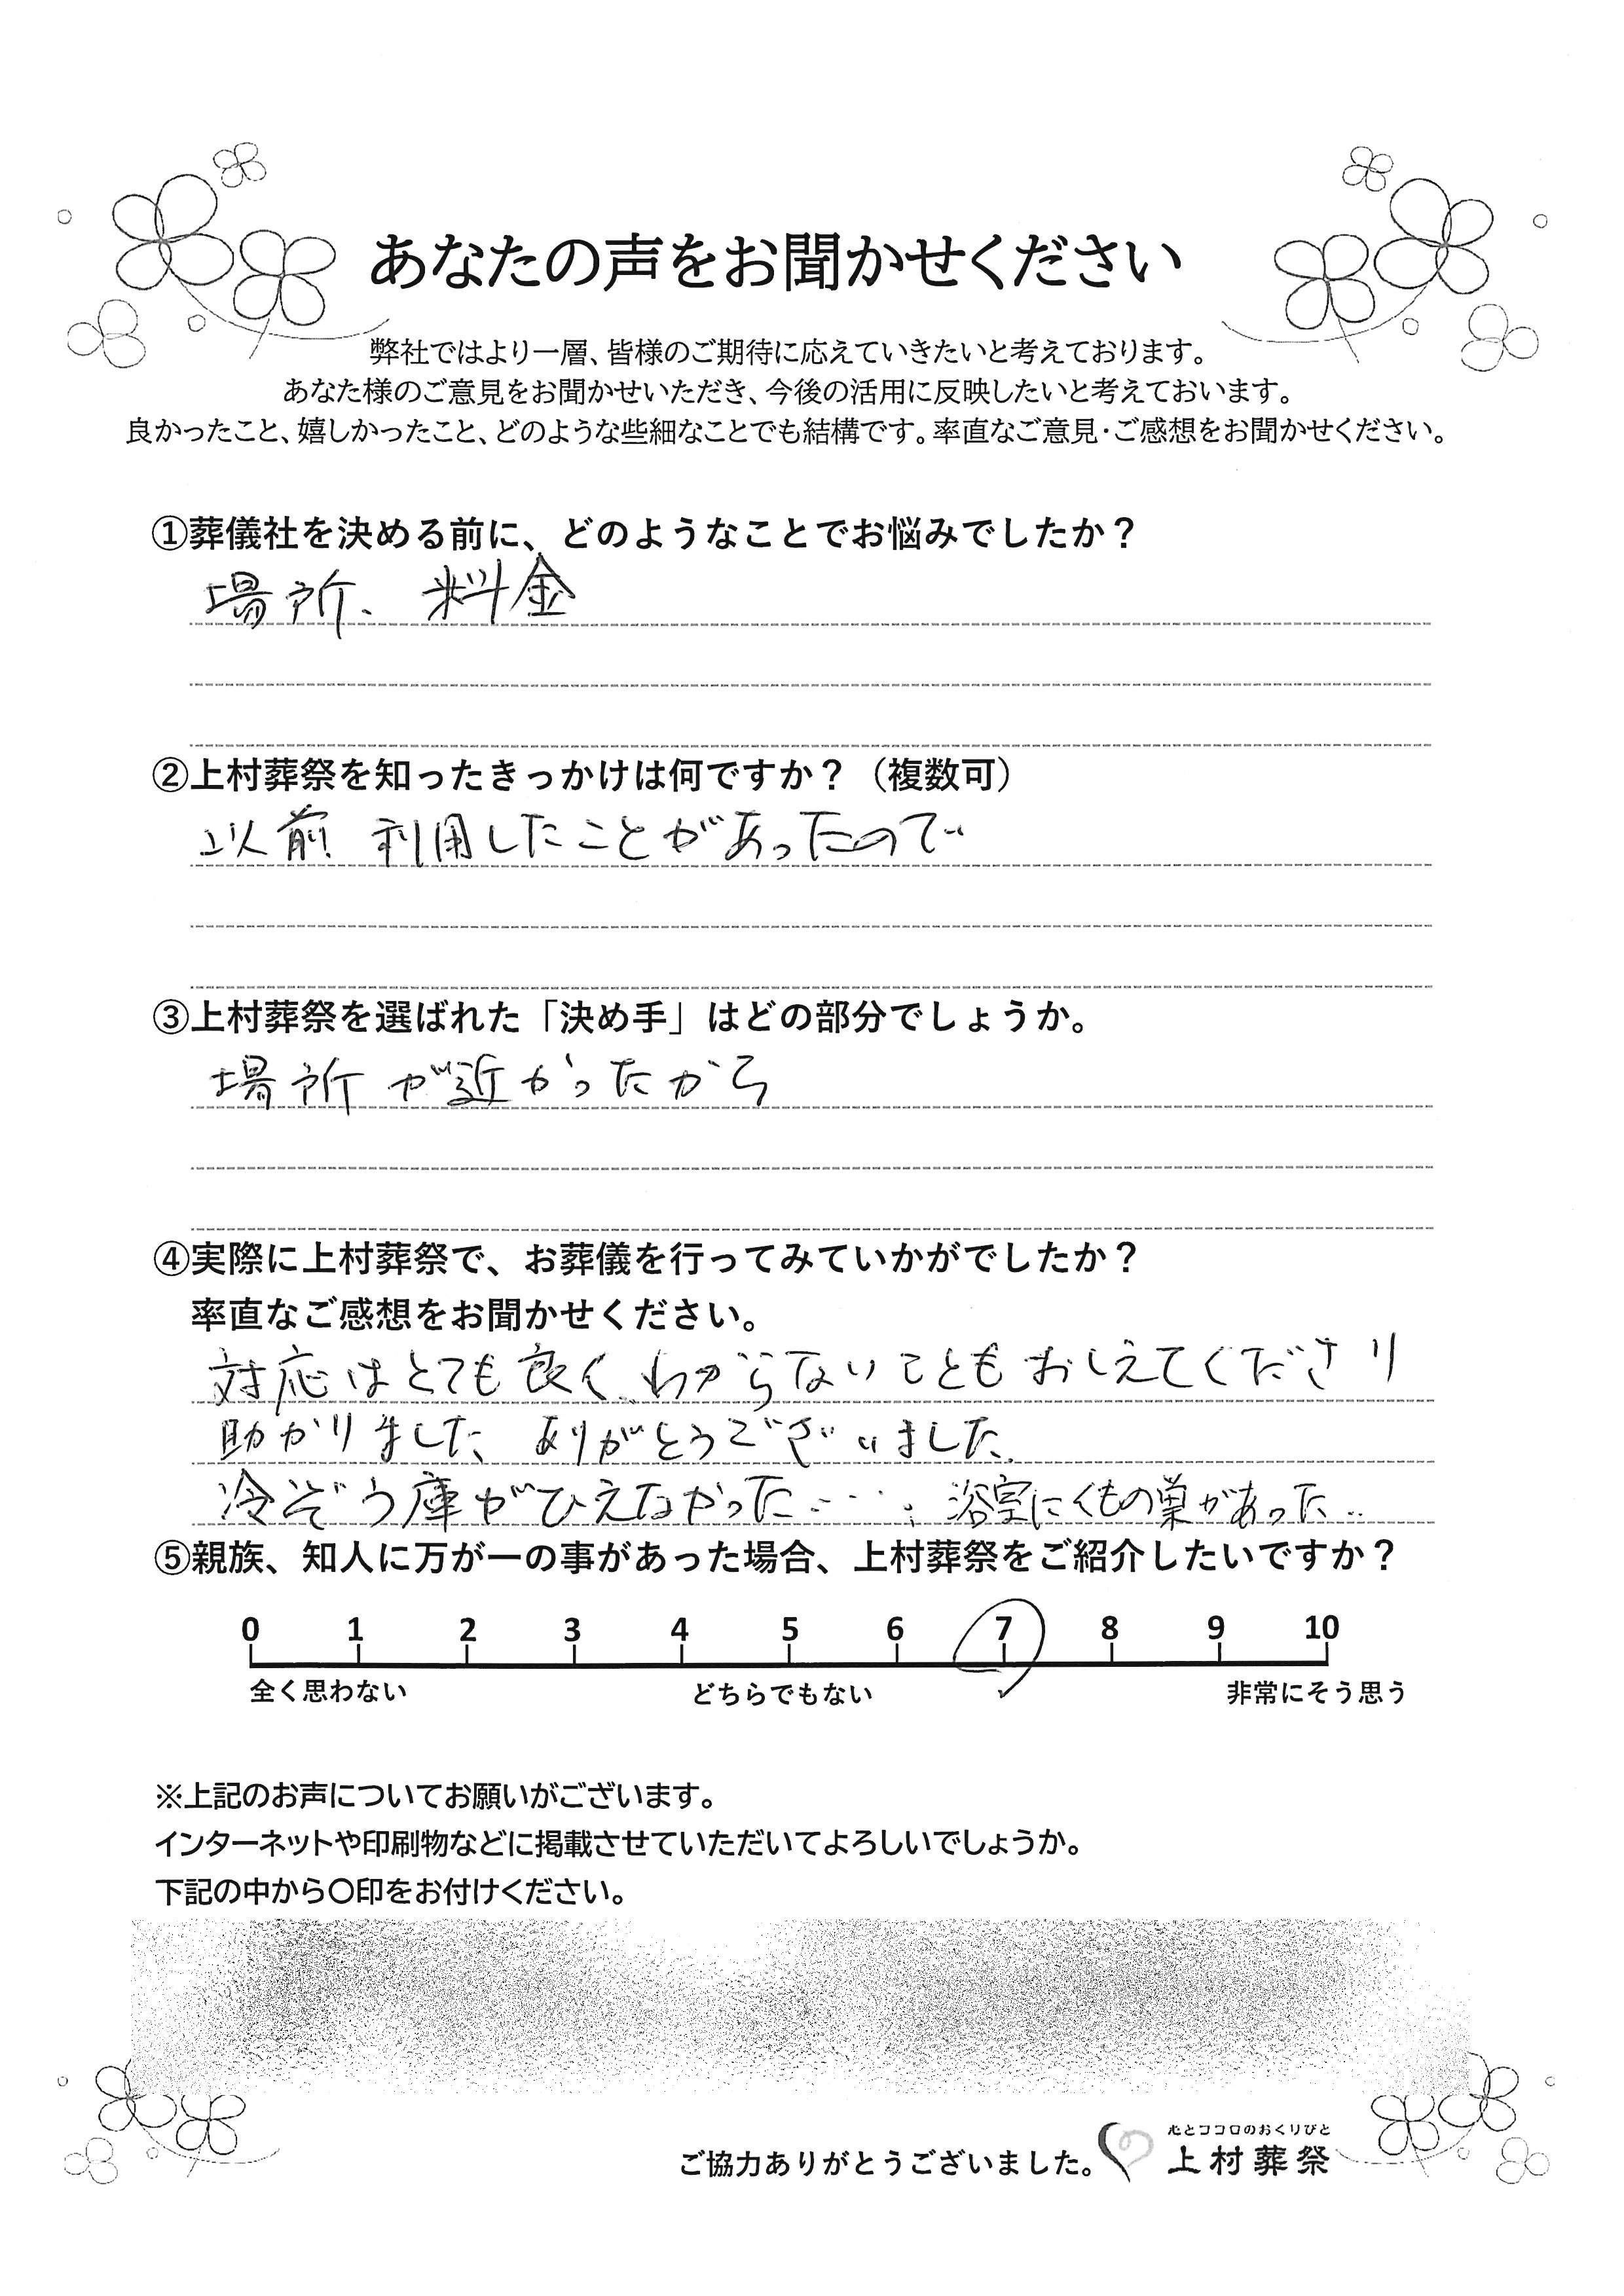 あなたの声をお聞かせください
弊社ではより一層、皆様のご期待に応えていきたいと考えております。
あなた様のご意見をお聞かせいただき、今後の活用に反映したいと考えておいます。
良かったこと、嬉しかったこと、どのような些細なことでも結構です。率直なご意見・ご感想をお聞かせください。
①葬儀社を決める前に、どのようなことでお悩みでしたか？
場所、料金
②上村葬祭を知ったきっかけは何ですか？（複数可）
以前利用したことがあったので
③上村葬祭を選ばれた「決め手」はどの部分でしょうか。
場所が近かったから
④実際に上村葬祭で、お葬儀を行ってみていかがでしたか？
率直なご感想をお聞かせください。
対応はとても良く、わからないこともおしえてくださり
助かりました、ありがとうございました。
冷ぞう庫がひえなかった…。浴室にくもの巣があった..
⑤親族、知人に万が一の事があった場合、上村葬祭をご紹介したいですか？
0 1 2 3 4 5 6 7 8 9 10
全く思わない どちらでもない 非常にそう思う
※上記のお声についてお願いがございます。
インターネットや印刷物などに掲載させていただいてよろしいでしょうか。
下記の中から〇印をお付けください。
心とココロのおくりびと
ご協力ありがとうございました。 上村葬祭